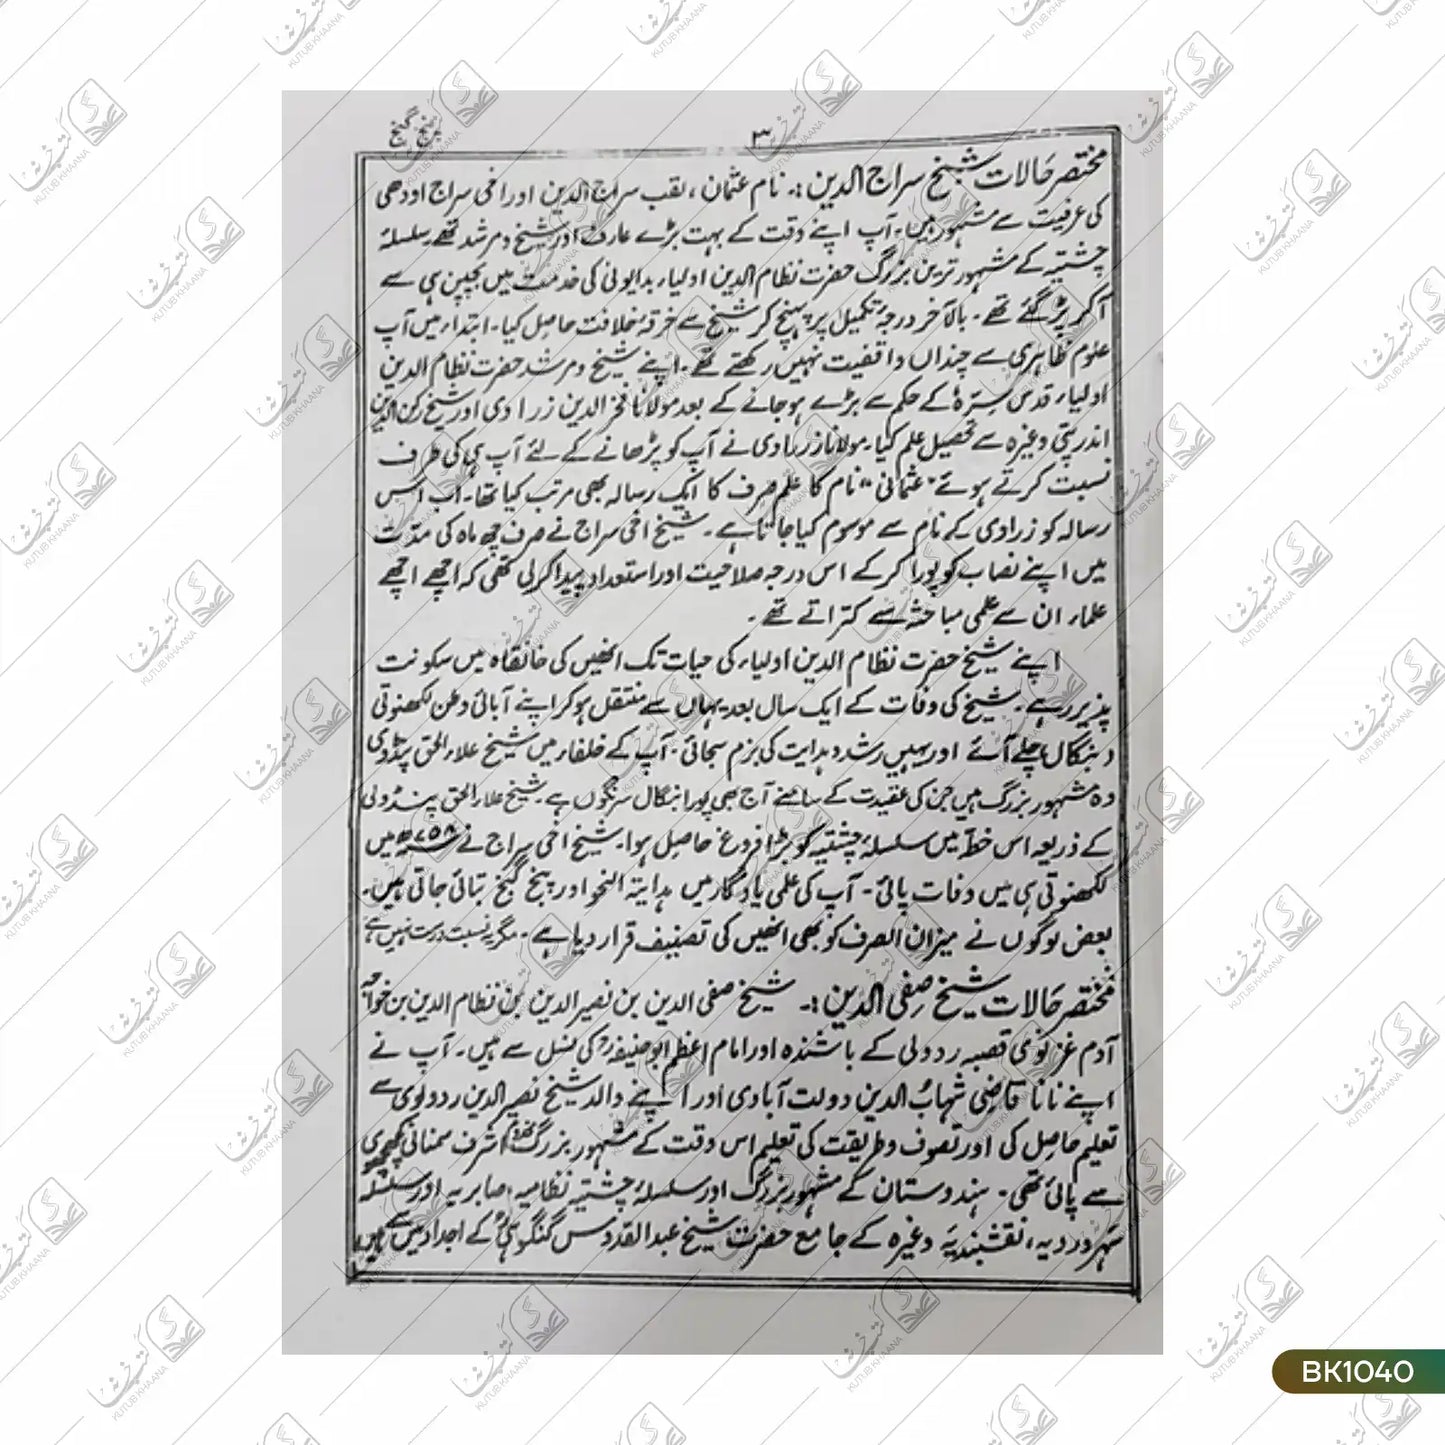 ۳
پنج گنج
مختصر حالات شیخ سراج الدین:۔ نام عثمان، لقب سراج الدین اور اخی سراج اودھی
کی عرفیت سے مشہور ہیں۔ آپ اپنے وقت کے بہت بڑے عارف اور شیخ و مرشد تھے۔ سلسلۂ
چشتیہ کے مشہور ترین بزرگ حضرت نظام الدین اولیاء بدایونی کی خدمت میں بچپن ہی سے
آکر پڑ گئے تھے۔ بالآخر درجۂ تکمیل پر پہنچ کر شیخ سے خرقۂ خلافت حاصل کیا۔ ابتداء میں آپ
علوم ظاہری سے چنداں واقفیت نہیں رکھتے تھے۔ اپنے شیخ و مرشد حضرت نظام الدین
اولیاء قدس سرہٗ کے حکم سے بڑے ہوجانے کے بعد مولانا فخر الدین زرادی اور شیخ رکن الدین
اندرپتی وغیرہ سے تحصیل علم کیا۔ مولانا زرادی نے آپ کو پڑھانے کے لئے آپ ہی کی طرف
نسبت کرتے ہوئے "عثمانی" نام کا علم صرف کا ایک رسالہ بھی مرتب کیا تھا۔ اب اس
رسالہ کو زرادی کے نام سے موسوم کیا جاتا ہے۔ شیخ اخی سراج نے صرف چھ ماہ کی مدّت
میں اپنے نصاب کو پورا کرکے اس درجہ صلاحیت اور استعداد پیدا کرلی تھی کہ اچھے اچھے
علماء ان سے علمی مباحثہ سے کتراتے تھے۔
اپنے شیخ حضرت نظام الدین اولیاء کی حیات تک انھیں کی خانقاہ میں سکونت
پذیر رہے۔ شیخ کی وفات کے ایک سال بعد یہاں سے منتقل ہو کر اپنے آبائی وطن لکھنوتی
(بنگال) چلے آئے اور یہیں رشد و ہدایت کی بزم سجائی۔ آپ کے خلفاء میں شیخ علاء الحق پنڈوی
وہ مشہور بزرگ ہیں جن کی عقیدت کے سامنے آج بھی پورا بنگال سرنگوں ہے۔ شیخ علاء الحق پنڈولی
کے ذریعہ اس خطہ میں سلسلۂ چشتیہ کو بڑا فروغ حاصل ہوا۔ شیخ اخی سراج نے ۷۵۸ھ میں
لکھنوتی ہی میں وفات پائی۔ آپ کی علمی یادگار میں ہدایۃ النحو اور پنج گنج بتائی جاتی ہیں۔
بعض لوگوں نے میزان الصرف کو بھی انھیں کی تصنیف قرار دیا ہے۔ مگر یہ نسبت درست نہیں ہے
مختصر حالات شیخ صفی الدین:۔ شیخ صفی الدین بن نصیر الدین بن نظام الدین بن خواجہ
آدم غزنوی قصبہ ردولی کے باشندہ اور امام اعظم ابوحنیفہؒ کی نسل سے ہیں۔ آپ نے
اپنے نانا قاضی شہاب الدین دولت آبادی اور اپنے والد شیخ نصیر الدین ردولوی سے
تعلیم حاصل کی اور تصوف و طریقت کی تعلیم اس وقت کے مشہور بزرگ اشرف سمنانی کچھوچھوی
سے پائی تھی۔ ہندوستان کے مشہور بزرگ اور سلسلۂ چشتیہ نظامیہ، صابریہ اور سلسلہ
سہروردیہ، نقشبندیہ وغیرہ کے جامع حضرت شیخ عبدالقدوس گنگوہیؒ کے اجداد میں سے ہیں
BK1040
کتب خانہ
KUTUB KHAANA